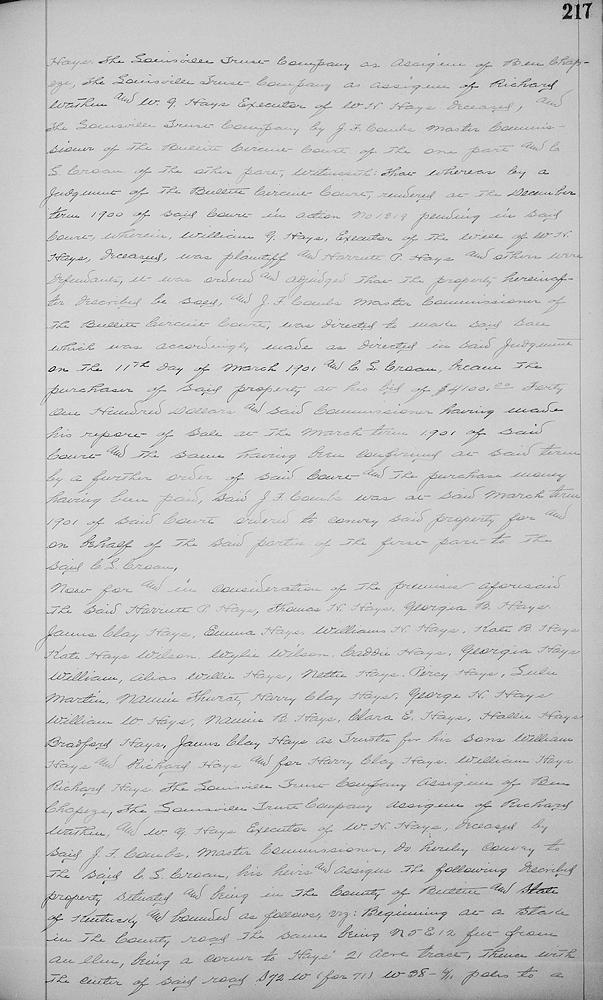 217
Hays The Louisville Trust Company as Assignee of Ben Chap-
eze, The Louisville Trust Company as assignee of Richard
Wathen and W. G. Hays Executor of W H Hays deceased, and
The Louisville Trust Company by J. F. Combs Master Commis-
sioner of the Bullitt Circuit Court of the one part and C
S. Croan of the other part, Witnesseth: That whereas by a
Judgment of the Bullitt Circuit Court, rendered at the December
term 1900 of said Court in action No 1219 pending in said
Court, wherein, William G. Hays, Executor of the Will of W. H.
Hays, Deceased, was plaintiff and Harriett P. Hays and others were
Defendants, it was ordered and adjudged that the property hereinaf-
ter described be sold, and J. F. Combs Master Commissioner of
the Bullitt Circuit Court, was directed to make said sale
which was accordingly made as directed in said Judgment
on the 11th day of March 1901 and C. S. Croan, became the
purchaser of said property at his bid of $4100.00 Forty
One Hundred Dollars and said Commissioner having made
his report of Sale at the March term 1901 of said
Court and the same having been confirmed at said term
by a further order of said Court and the purchase money
having been paid, said J. F. Combs was at said March term
1901 of said Court ordered to convey said property for and
on behalf of the said parties of the first part to the
said C S. Croan,
Now for and in consideration of the premises aforesaid
the said Harriett P. Hays, Thomas H. Hays, Georgia B. Hays
James Clay Hays, Emma Hays, Williams H. Hays, Kate B. Hays
Kate Hays Wilson, Wylie Wilson, Caddie Hays, Georgia Hays
William, alias Willie Hays, Nettie Hays, Percy Hays, Lulie
Martin, Nannie Hays, Harry Clay Hays, George H. Hays
William W Hays, Nannie B. Hays, Clara E. Hays, Hallie Hays
Bradford Hays, James Clay Hays as Trustee for his sons William
Hays and Richard Hays and for Harry Clay Hays. William Hays
Richard Hays The Louisville Trust Company Assignee of Ben
Chapeze, The Louisville Trust Company assignee of Richard
Wathen, and W. G. Hays Executor of W. H. Hays, deceased by
said J. F. Combs, Master Commissioner, do hereby convey to
the said C. S. Croan, his heirs and assigns the following described
property situated and being in the County of Bullitt and State
of Kentucky and bounded as follows, viz: Beginning at a Stake
in the County road the same being N 5 E 12 feet from
an elm, being a corner to Hays' 21 acre tract, thence with
the center of said road S 72 W (for 71) W 38- poles to a